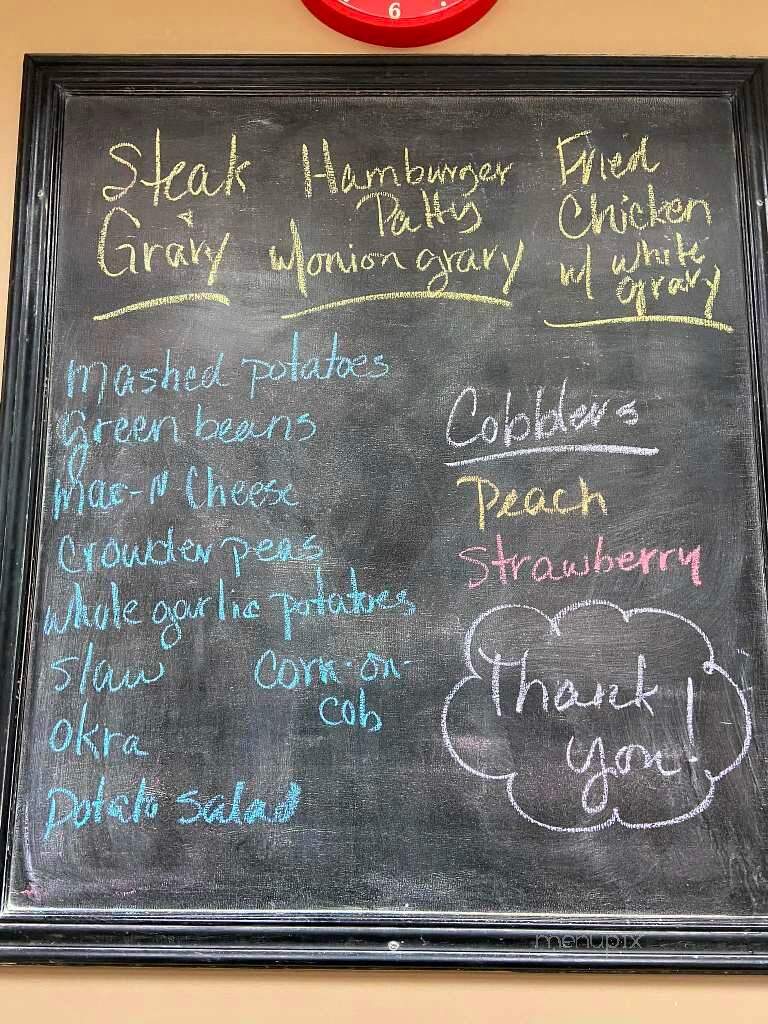 6
Steak
&
Gravy
Hamburger
Patty
w/onion gravy
Fried
Chicken
w/ white
gravy
mashed potatoes
green beans
Mac-N Cheese
Crowder peas
whole garlic potatoes
slaw
Corn-on-
cob
okra
Potato salad
Cobblers
Peach
Strawberry
Thank
you!
menupix